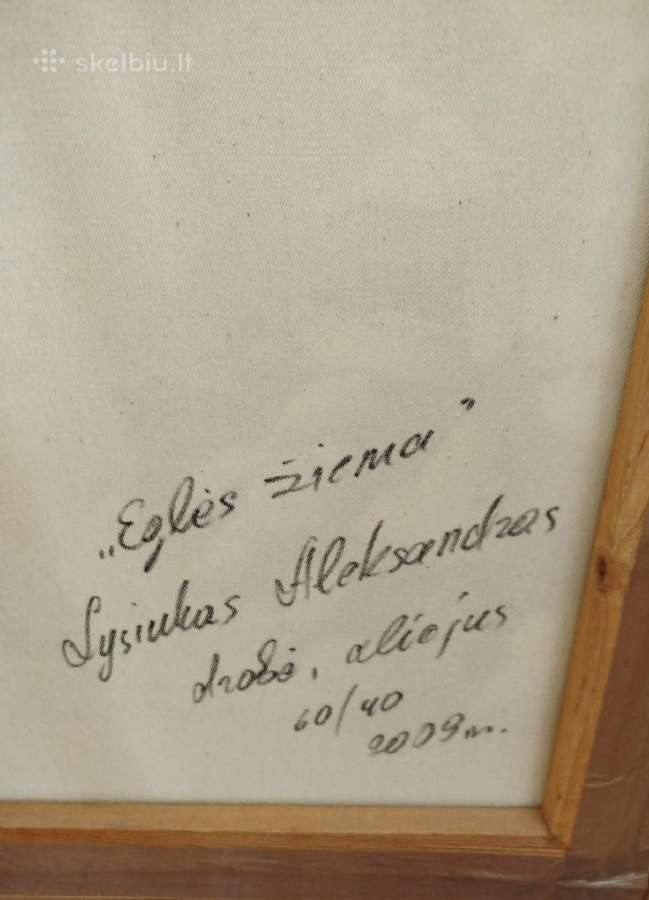 skelbiu.lt
„Eglės žiema”
Lysiukas Aleksandras
drobė, aliejus
60/40
2009 m.